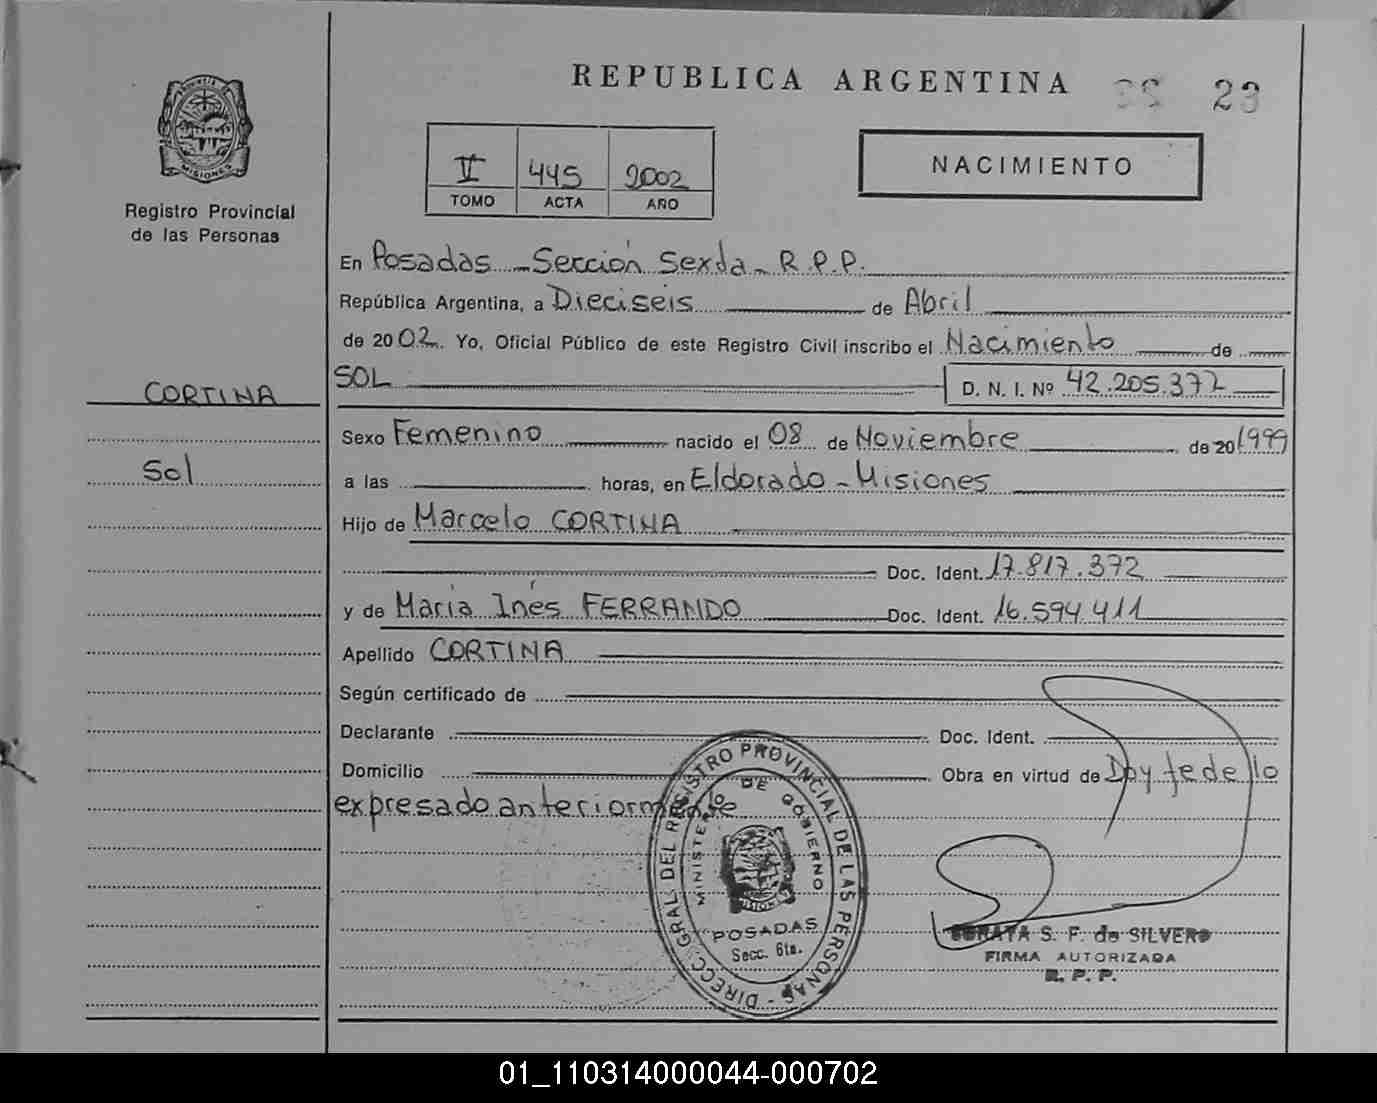 REPUBLICA ARGENTINA
23
MISIONES
Registro Provincial
de las Personas
V 445 2002
TOMO ACTA AÑO
NACIMIENTO
CORTINA
Sol
En Posadas - Sección Sexta - R.P.P.
República Argentina, a Dieciseis de Abril
de 2002. Yo, Oficial Público de este Registro Civil inscribo el Nacimiento de
SOL D. N. I. Nº 42.205.372
Sexo Femenino nacido el 08 de Noviembre de 20 1999
a las horas, en Eldorado - Misiones
Hijo de Marcelo CORTINA
Doc. Ident. 17.817.372
y de María Inés FERRANDO Doc. Ident. 16.594.411
Apellido CORTINA
Según certificado de
Declarante Doc. Ident.
Domicilio Obra en virtud de Doy fe de lo
expresado anteriormente
DIRECC. GRAL. DEL REGISTRO PROVINCIAL DE LAS PERSONAS
MINISTERIO DE GOBIERNO
POSADAS
Secc. 6ta.
S. F. de SILVERO
FIRMA AUTORIZADA
R. P. P.
01_110314000044-000702